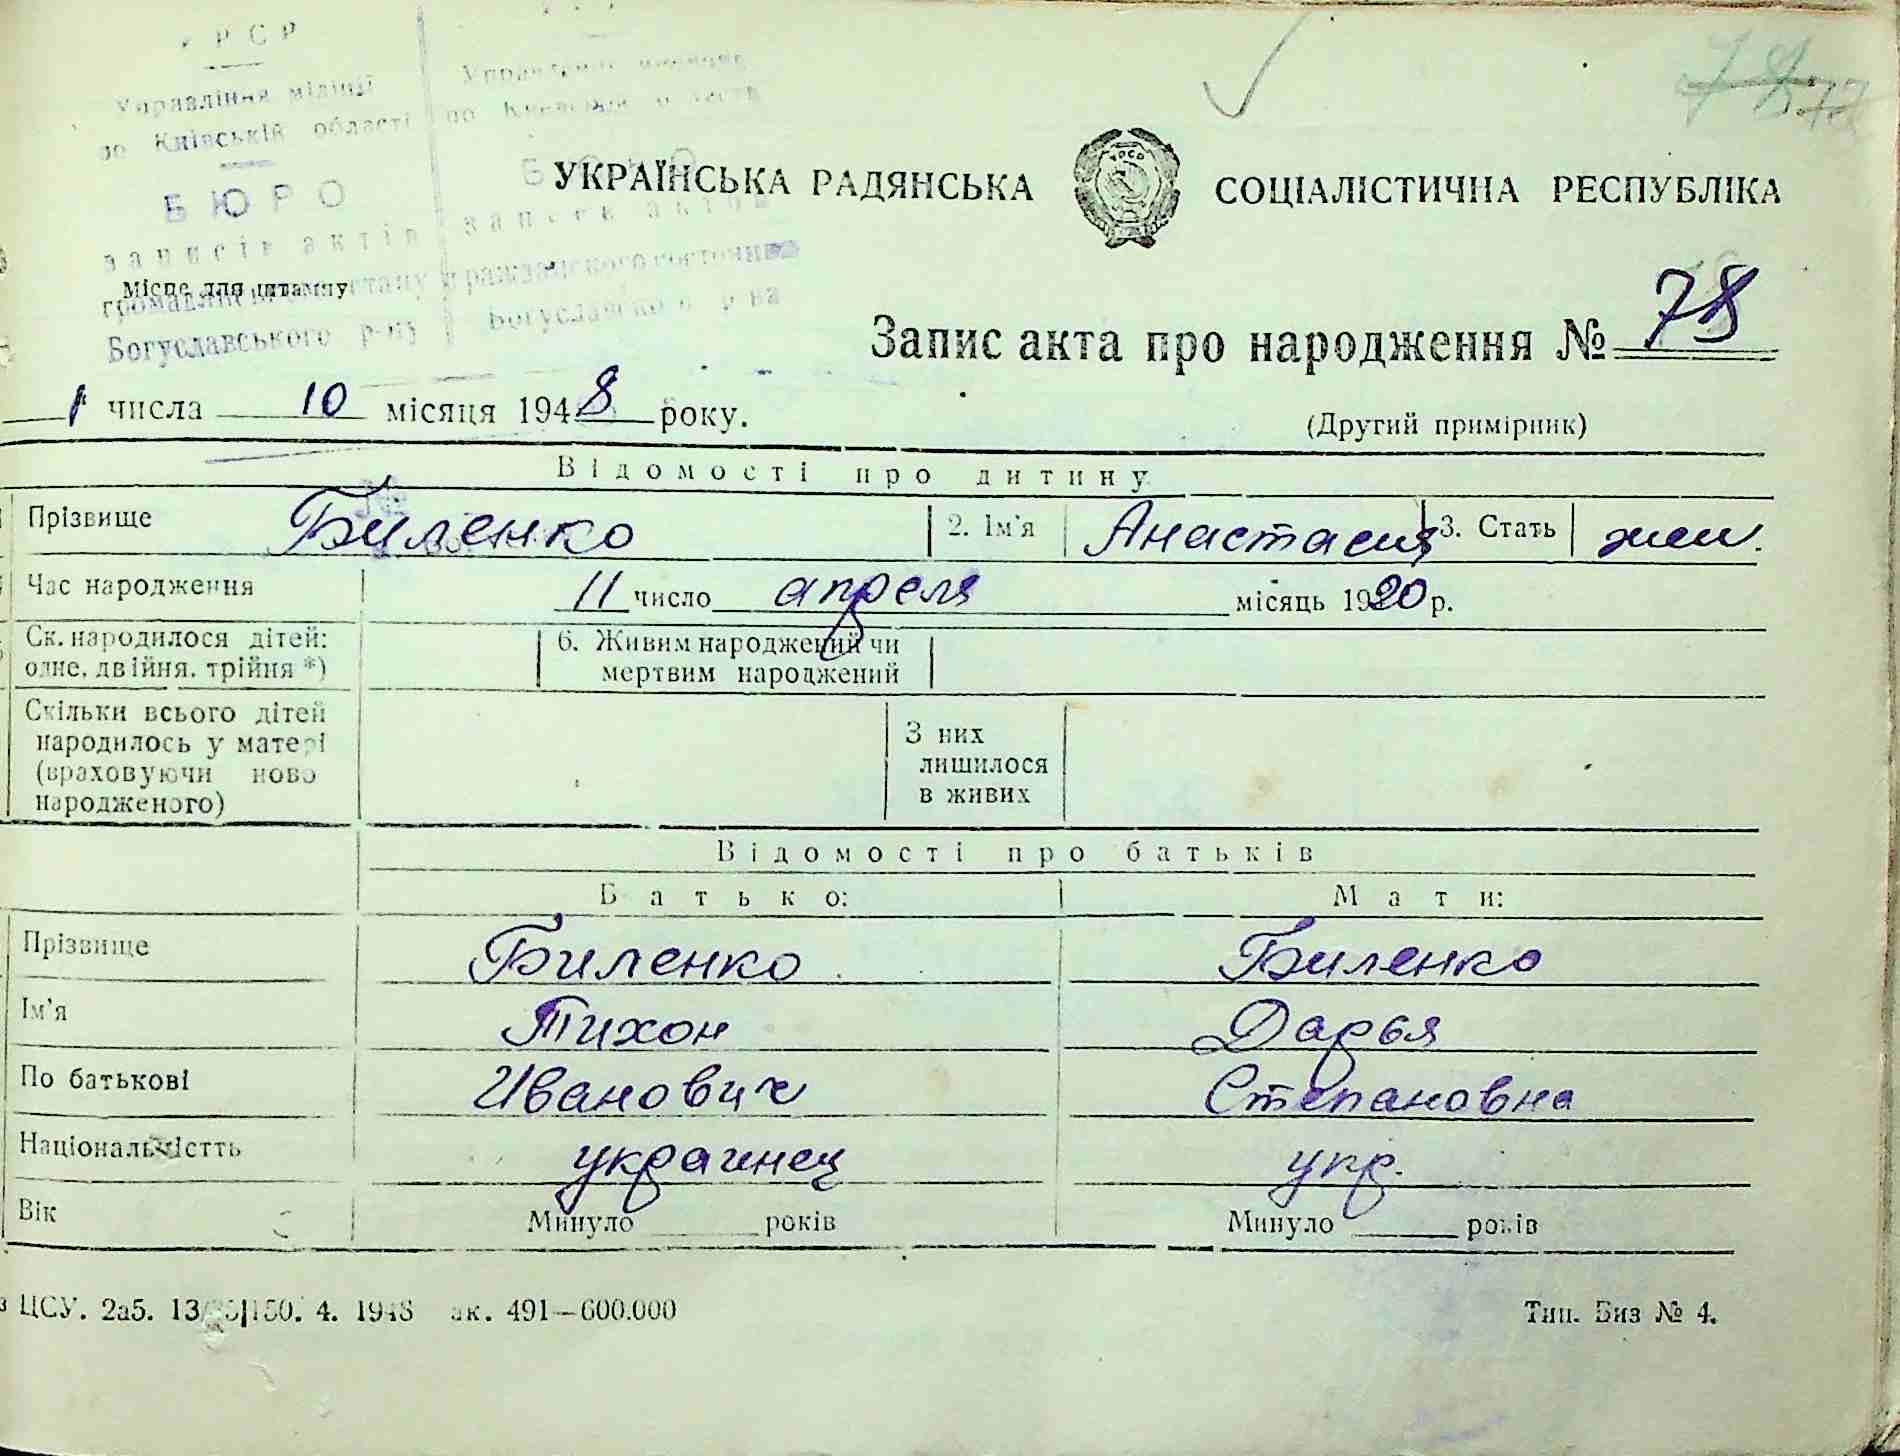 УРСР
Управління міліції
по Київській області
БЮРО
записів актів
Богуславського р-ну
Управление милиции
по Киевской области
БЮРО
записи актов
гражданского состояния
Богуславского р-на
78
УКРАЇНСЬКА РАДЯНСЬКА СОЦІАЛІСТИЧНА РЕСПУБЛІКА
Місце для штампу
Запис акта про народження № 78
1 числа 10 місяця 1948 року.
(Другий примірник)
Відомості про дитину
Прізвище Биленко 2. Ім'я Анастасия 3. Стать жен.
Час народження 11 число апреля місяць 1920 р.
Ск. народилося дітей: одне, двійня, трійня *)
6. Живим народжений чи мертвим народжений
Скільки всього дітей
народилось у матері
(враховуючи ново
народженого)
З них
лишилося
в живих
Відомості про батьків
Батько: Мати:
Прізвище Биленко Биленко
Ім'я Тихон Дарья
По батькові Иванович Степановна
Національністть украинец укр.
Вік Минуло років Минуло років
ЦСУ. 2а5. 13 150. 4. 1948 зк. 491—600.000
Тип. Биз № 4.